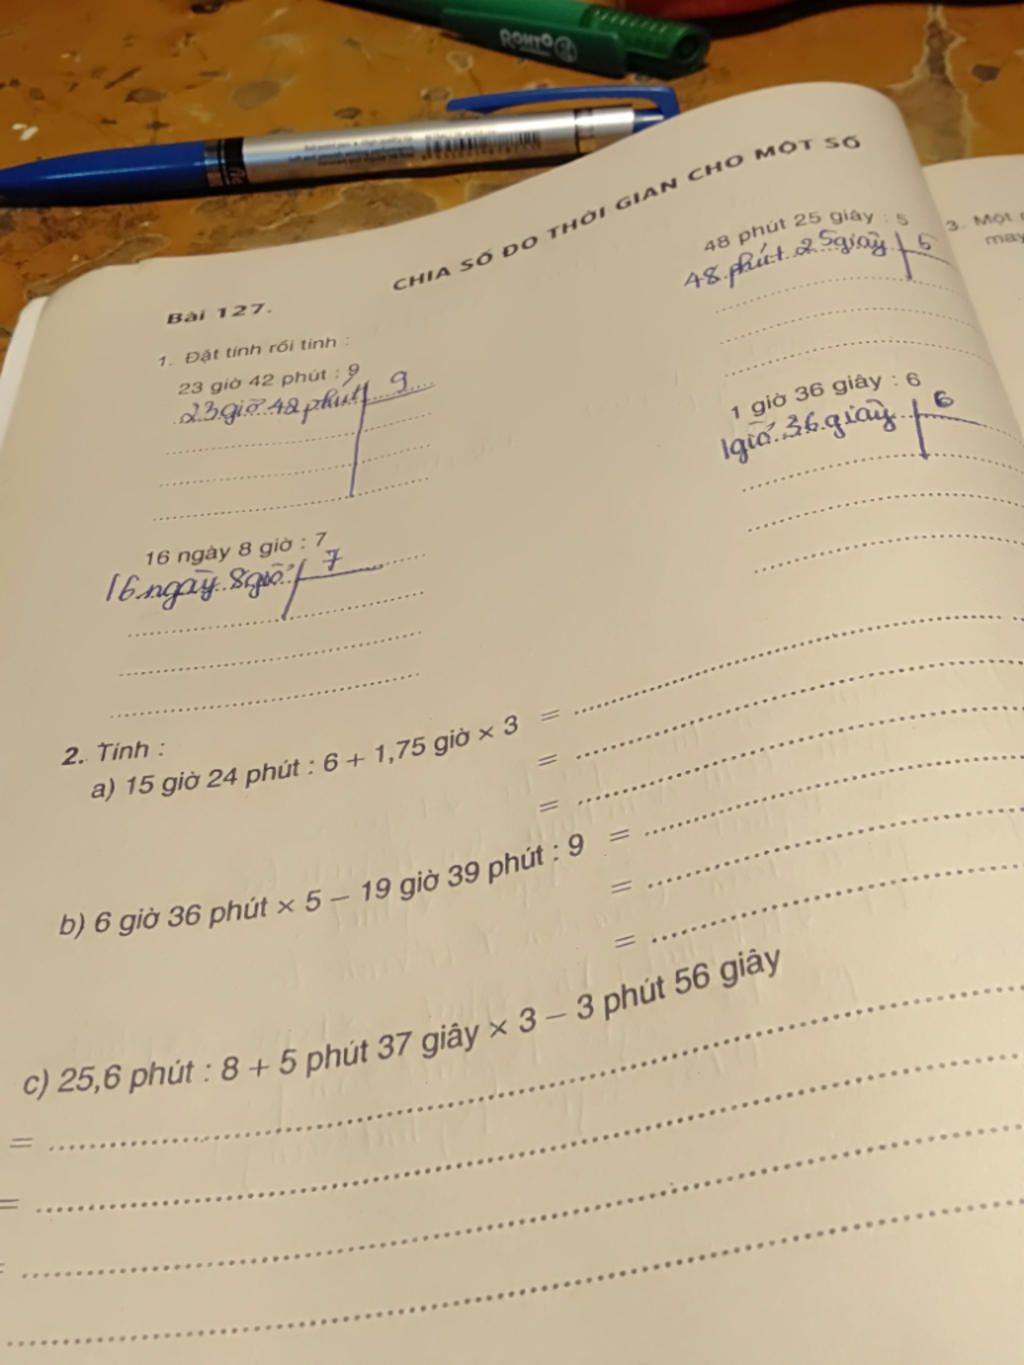 ROHTO
CHIA SỐ ĐO THỜI GIAN CHO MỘT SỐ
Bài 127.
1. Đặt tính rồi tính :
23 giờ 42 phút : 9
23 giờ 42 phút 9
16 ngày 8 giờ : 7
16 ngày 8 giờ 7
48 phút 25 giây : 5
48 phút 25 giây 5
1 giờ 36 giây : 6
1 giờ 36 giây 6
2. Tính :
a) 15 giờ 24 phút : 6 + 1,75 giờ × 3 =
=
=
b) 6 giờ 36 phút × 5 – 19 giờ 39 phút : 9 =
=
=
c) 25,6 phút : 8 + 5 phút 37 giây × 3 – 3 phút 56 giây
=
=
=
3. Một